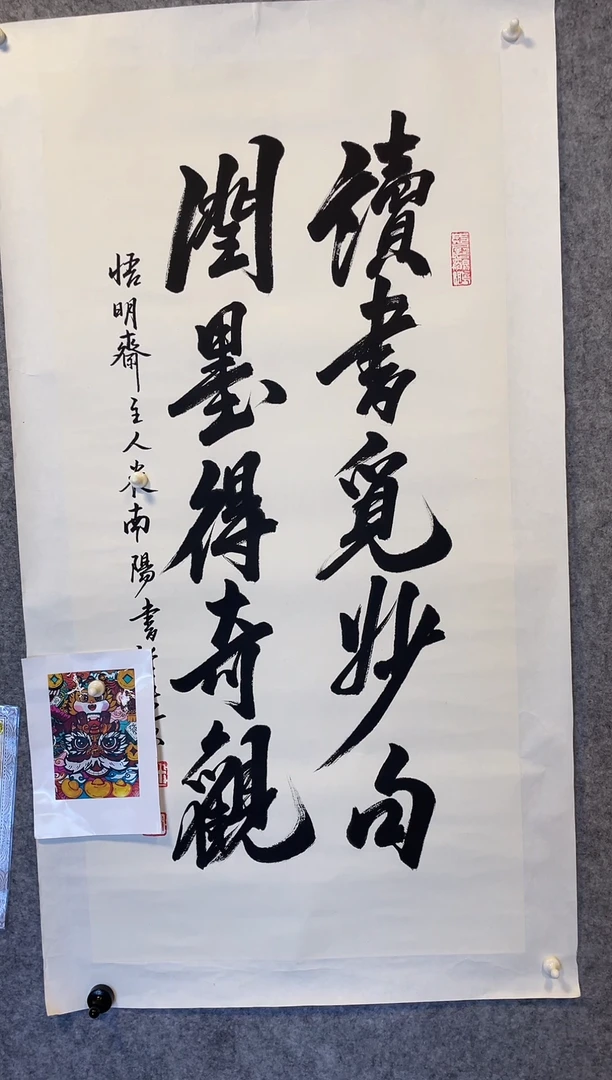 讀書覓妙句
潤墨得奇觀
悟明齋主人 南陽書